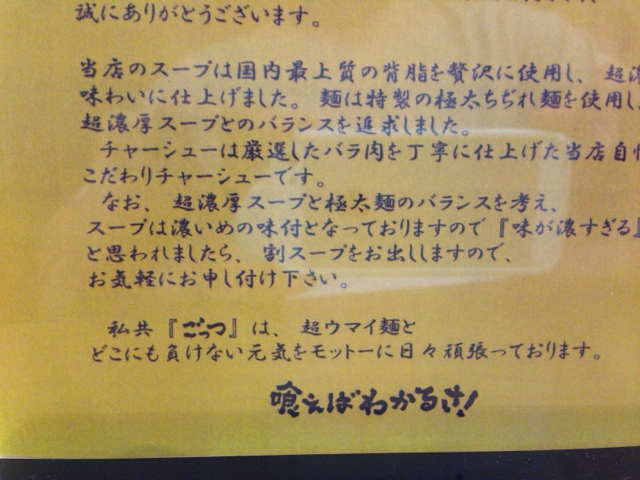 誠にありがとうございます。
当店のスープは国内最上質の背脂を贅沢に使用し、超濃
味わいに仕上げました。麺は特製の極太ちぢれ麺を使用し
超濃厚スープとのバランスを追求しました。
チャーシューは厳選したバラ肉を丁寧に仕上げた当店自慢
こだわりチャーシューです。
なお、超濃厚スープと極太麺のバランスを考え、
スープは濃いめの味付となっておりますので『味が濃すぎる』
と思われましたら、割スープをお出ししますので、
お気軽にお申し付け下さい。
私共『ごっつ』は、超ウマイ麺と
どこにも負けない元気をモットーに日々頑張っております。
喰えばわかるさ!